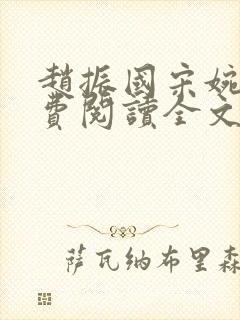 趙振國宋婉
費閱讀全文
萨瓦纳布里森